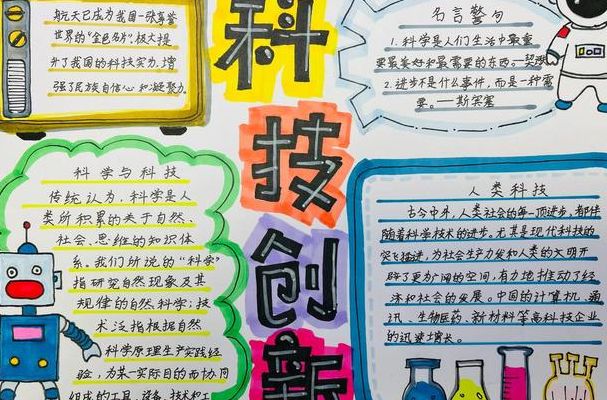 航天已成为我国一张享誉
世界的“金色名片”,极大提
升了我国的科技实力,增
强了民族自信心和凝聚力.
科
技
创
新
名言警句
1.科学是人们生活中最重
要最美好和最需要的东西.—契诃夫
2.进步不是什么事件,而是一种需
要。—斯宾塞
科学与科技
传统认为,科学是人
类所积累的关于自然、
社会、思维的知识体
系.我们所说的“科学”
指研究自然现象及其
规律的自然科学;技
术泛指根据自然
科学原理生产实践经
验,为某一实际目的而协同
组成的工具、设备、技术和工
人类科技
古今中外,人类社会的每一项进步,都伴
随着科学技术的进步.尤其是现代科技的
突飞猛进,为社会生产力发和人类的文明开
辟了更为广阔的空间,有力地推动了经
济和社会的发展。中国的计算机、通
讯、生物医药、新材料等高科技企业
的迅速增长。